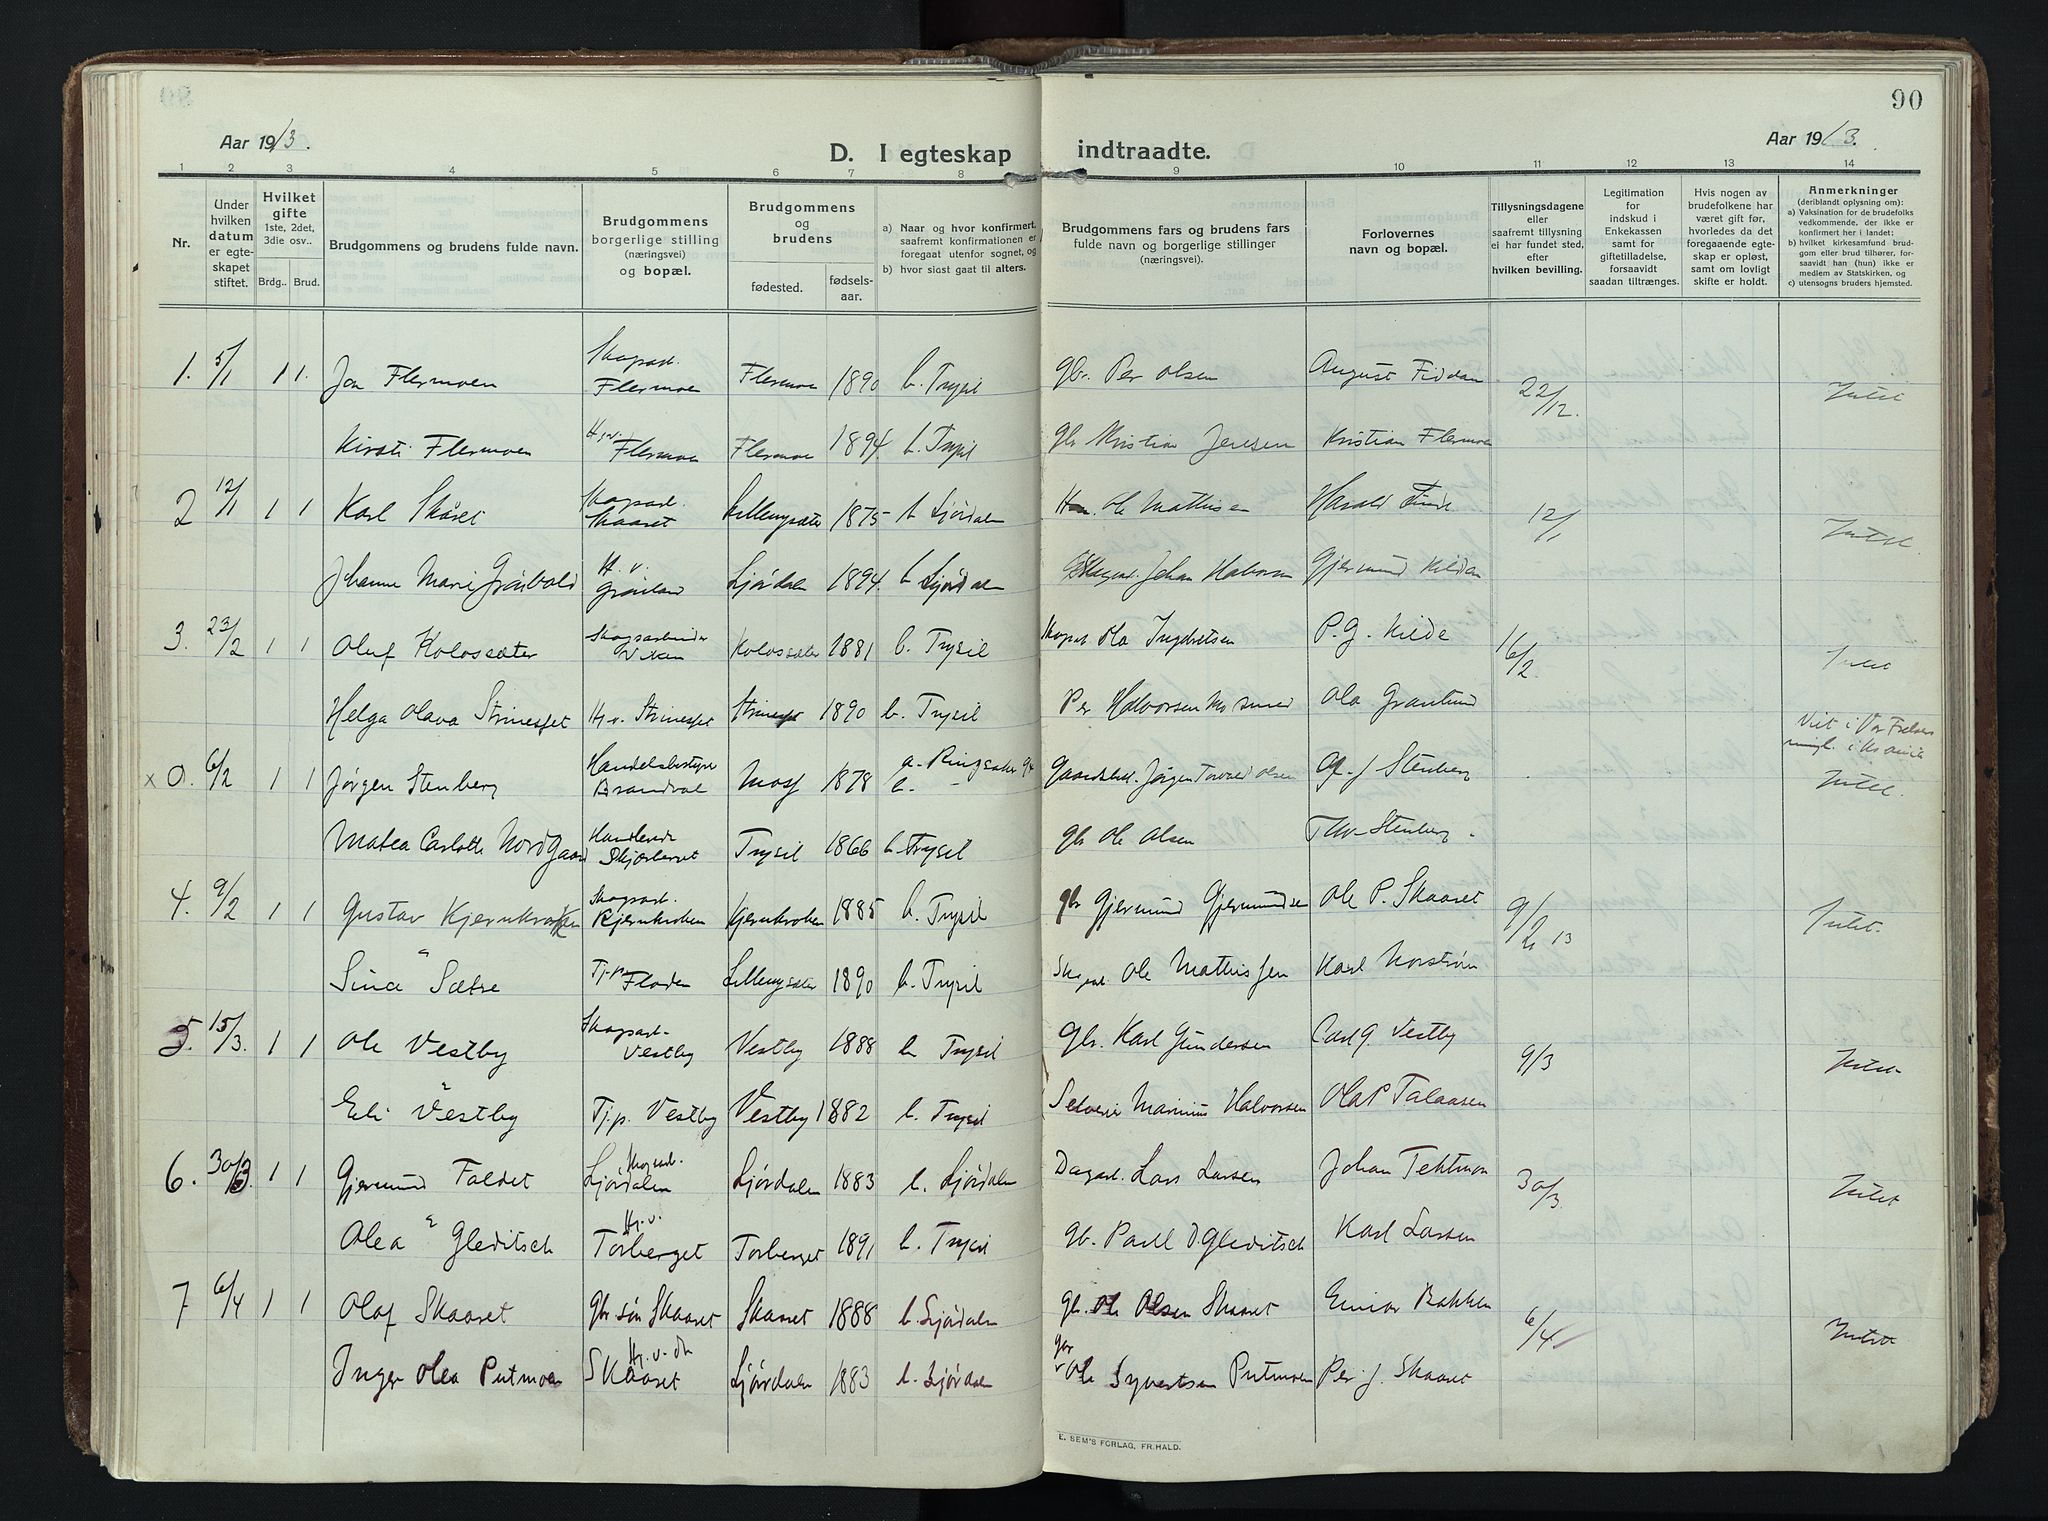 90
Aar 1913.
Aar 1913.
D. I egteskap indtraadte.
1 2 3 4 5 6 7 8 9 10 11 12 13 14
Nr.
Under hvilken datum er egteskapet stiftet.
Hvilket gifte 1ste, 2det, 3die osv..
Brdg.. Brud.
Brudgommens og brudens fulde navn.
Brudgommens borgerlige stilling (næringsvei) og bopæl.
Brudgommens og brudens
fødested.
fødselsaar.
a) Naar og hvor konfirmert, saafremt konfirmationen er foregaat utenfor sognet, og
b) hvor sidst gaat til alters.
Brudgommens fars og brudens fars fulde navn og borgerlige stillinger (næringsvei).
Forlovernes navn og bopæl.
Tillysningsdagene eller saafremt tillysning ei har fundet sted, efter hvilken bevilling.
Legitimation for indskud i Enkekassen samt for giftetilladelse, forsaavidt saadan tiltrænges.
Hvis nogen av brudefolkene har været gift før, hvorledes da det foregaaende egteskap er opløst, samt om lovligt skifte er holdt.
Anmerkninger (deriblandt oplysning om):
a) Vaksination for de brudefolks vedkommende, der ikke er konfirmert her i landet;
b) hvilket kirkesamfund brudgom eller brud tilhører, forsaavidt han (hun) ikke er medlem av Statskirken, og
c) utensogns bruders hjemsted.
1. 5/1 1 1. Jon Flermoen Skogsarb. Flermoen Flermoen 1890 b. Trysil gbr. Per Olsen August Fiddan 22/12. Intet
Kirsti Flermoen H.v. Flermoen Flermoe 1894. b. Trysil gbr Kristian Jensen Kristian Flermoen
2 12/1 1 1 Karl Skåret Skogsarb. Skaaret Lillemysæter 1875 b Ljørdalen Ole Mathisen Harald 12/1 Intet.
Johanne Marie H. v. Ljørdalen 1894. b Ljørdalen Johan Halvorsen Gjermund Kildan
3. 23/2 1 1 Oluf Kolossæter Skogsarbeider Viken Kolossæter 1881 b. Trysil Skogsarb Ola Ingebretsen P. G. Kilde 16/2. Intet
Helga Olava Strinesset Hj.v. Strinesset Strinesset 1890 b. Trysil Per Halvorsen Ola Granlund
Viet i Vor Frelsers
x 0. 6/2 1 1 Jørgen Stenberg Handelsbestyrer Brandval Moss 1878 a. Ringsaker 94 b. - Gaardsbest. Jørgen Torvald Olsen J Stenberg Intet.
Matea Carlotte Nordgaard Handlende Skjærberget Trysil 1866 b. Trysil gbr Ole Olsen Thv. Stenberg.
4. 9/2 1 1 Gustav Kjernkroken Skogsarb. Kjernkroken Kjernkroken 1885 b. Trysil gbr Gjermund Gjermundsen Ole P. Skaaret 9/2 13 Intet.
Sina Sætre Tj.p. Floden Lillemysæter 1890 b. Trysil Skogsarb. Ole Mathissen Karl Norström
5. 15/3. 1 1 Ole Vestby Skogsarb. Vestby Vestby 1888 b. Trysil Gbr. Karl Gundersen Carl G. Vestby 9/3 Intet.
Eli Vestby Tj.p. Vestby Vestby 1882 b. Trysil Selveier Marinius Halvorsen Ola P Talaasen
6. 30/3. 1 1 Gjermund Faldet Skogsarb. Ljørdalen Ljørdalen 1883 b. Ljørdalen Dagarb. Lars Larsen Johan Tektmon 30/3. Intet
Olea Gleditsch Hj.v. Torberget Torberget 1891 b. Trysil gb. Paul D Gleditsch Karl Larsen
7 6/4 1 1 Olaf Skaaret Gbr søn Skaaret Skaaret 1888 b. Ljørdalen gb. Ole Olsen Skaaret Einar Bakken 6/4 Intet
Inger Olea Putmoen Hj.v. Skaaret Ljørdalen 1883 b. Ljørdalen gbr Ole Syvertsen Putmoen Per J. Skaaret
E. SEM'S FORLAG, FR.HALD.